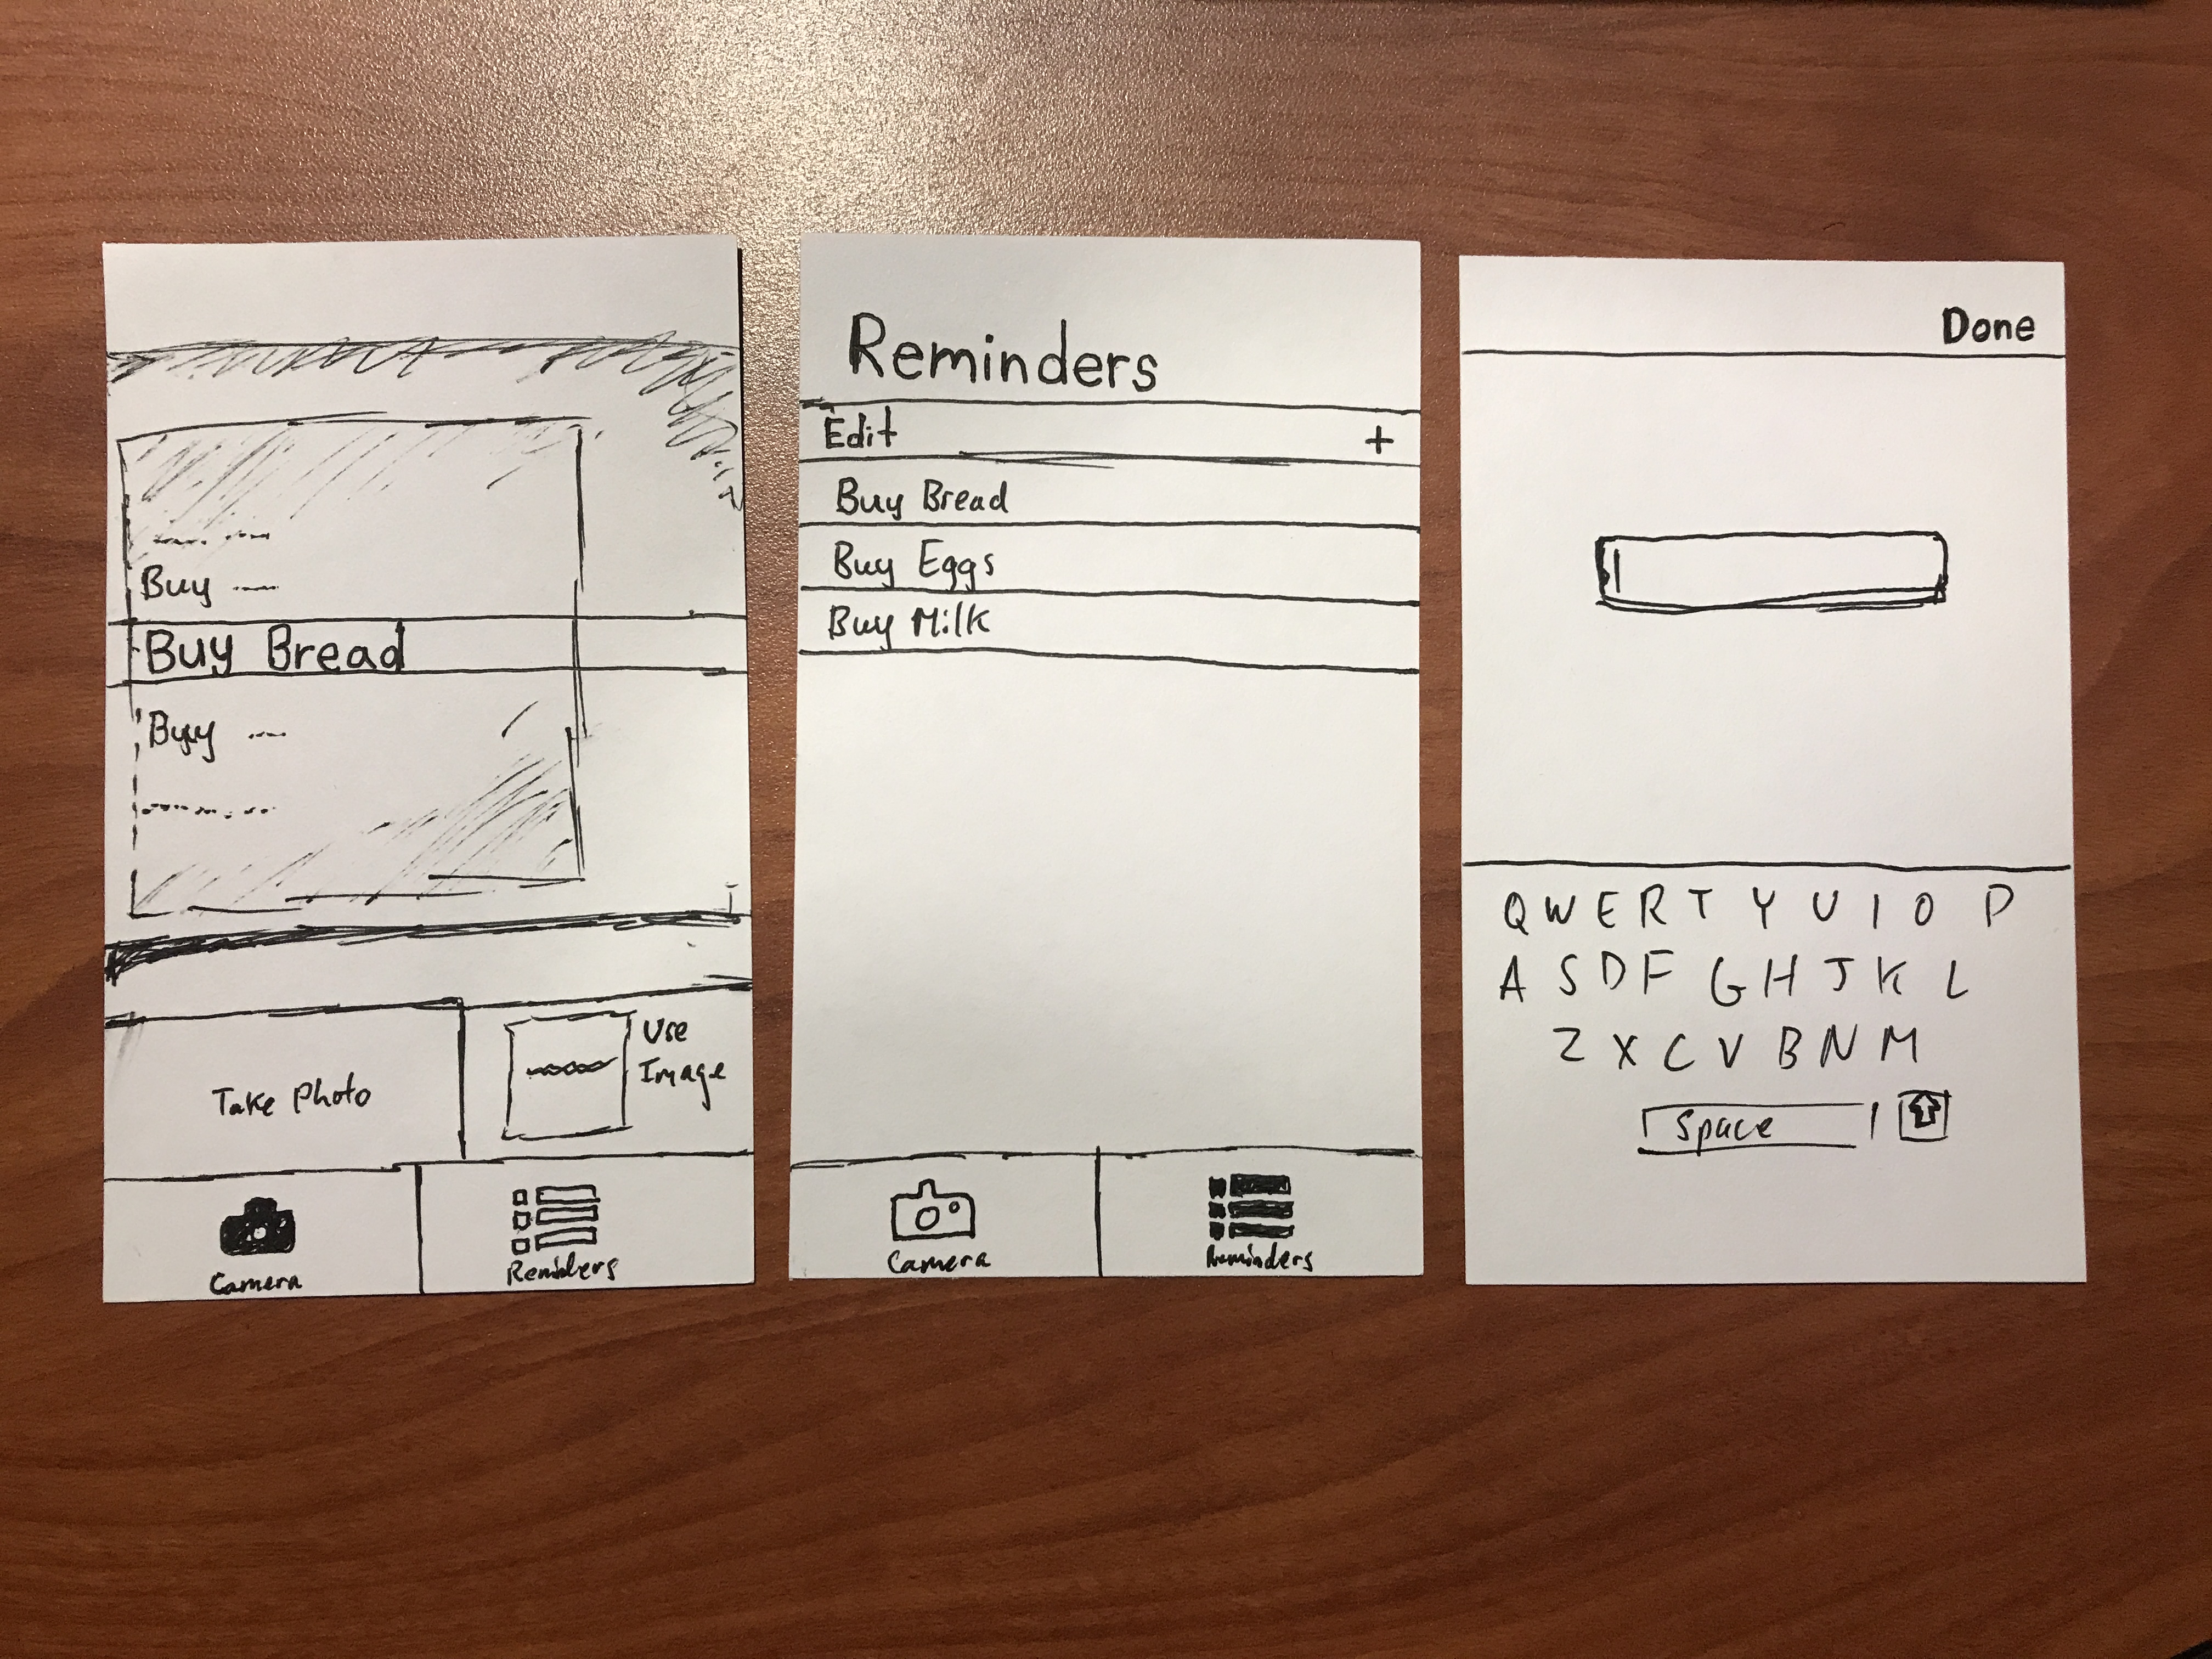 Buy
Buy Bread
Buy
Take Photo
Use
Image
Camera
Reminders
Reminders
Edit +
Buy Bread
Buy Eggs
Buy Milk
Camera
Reminders
Done
Q W E R T Y U I O P
A S D F G H J K L
Z X C V B N M
Space